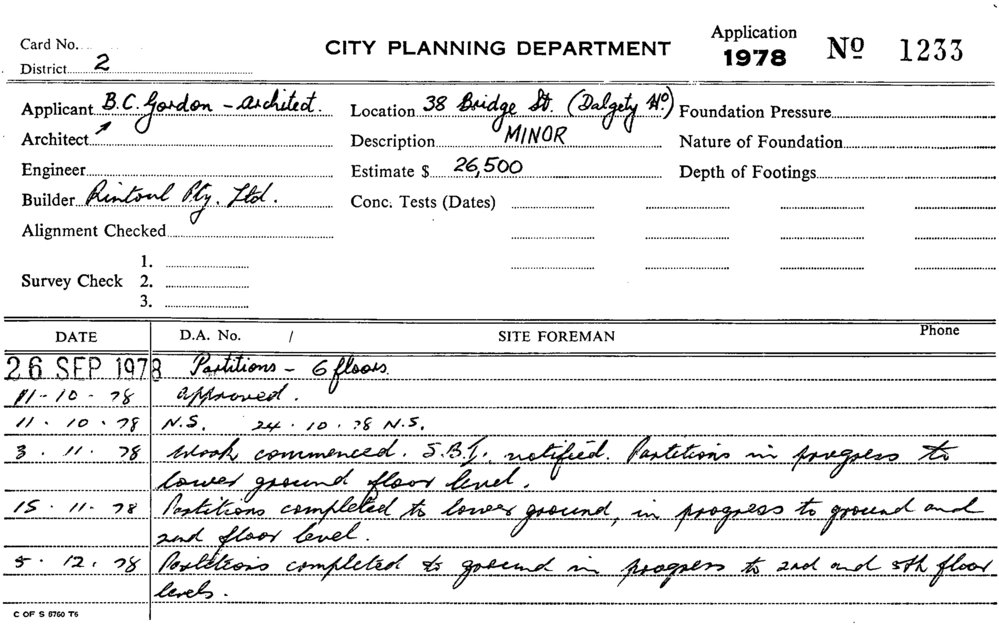 Card No.
CITY PLANNING DEPARTMENT
Application
1978
No 1233
District 2
Applicant B.C. Gordon - architect.
Location 38 Bridge St. (Dalgety Ho)
Foundation Pressure
Architect
Description MINOR
Nature of Foundation
Engineer
Estimate $ 26,500
Depth of Footings
Builder Rintoul Pty. Ltd.
Conc. Tests (Dates)
Alignment Checked
Survey Check 1.
2.
3.
DATE D.A. No. / SITE FOREMAN Phone
26 SEP 1978 Partitions - 6 floors.
11-10-78 approved.
11.10.78 N.S. 24.10.78 N.S.
3.11.78 Work commenced. S.B.I. notified. Partitions in progress to
lower ground floor level.
15.11.78 Partitions completed to lower ground, in progress to ground and
2nd floor level.
5.12.78 Partitions completed to ground in progress to 2nd and 5th floor
levels.
C OF S 8760 T6